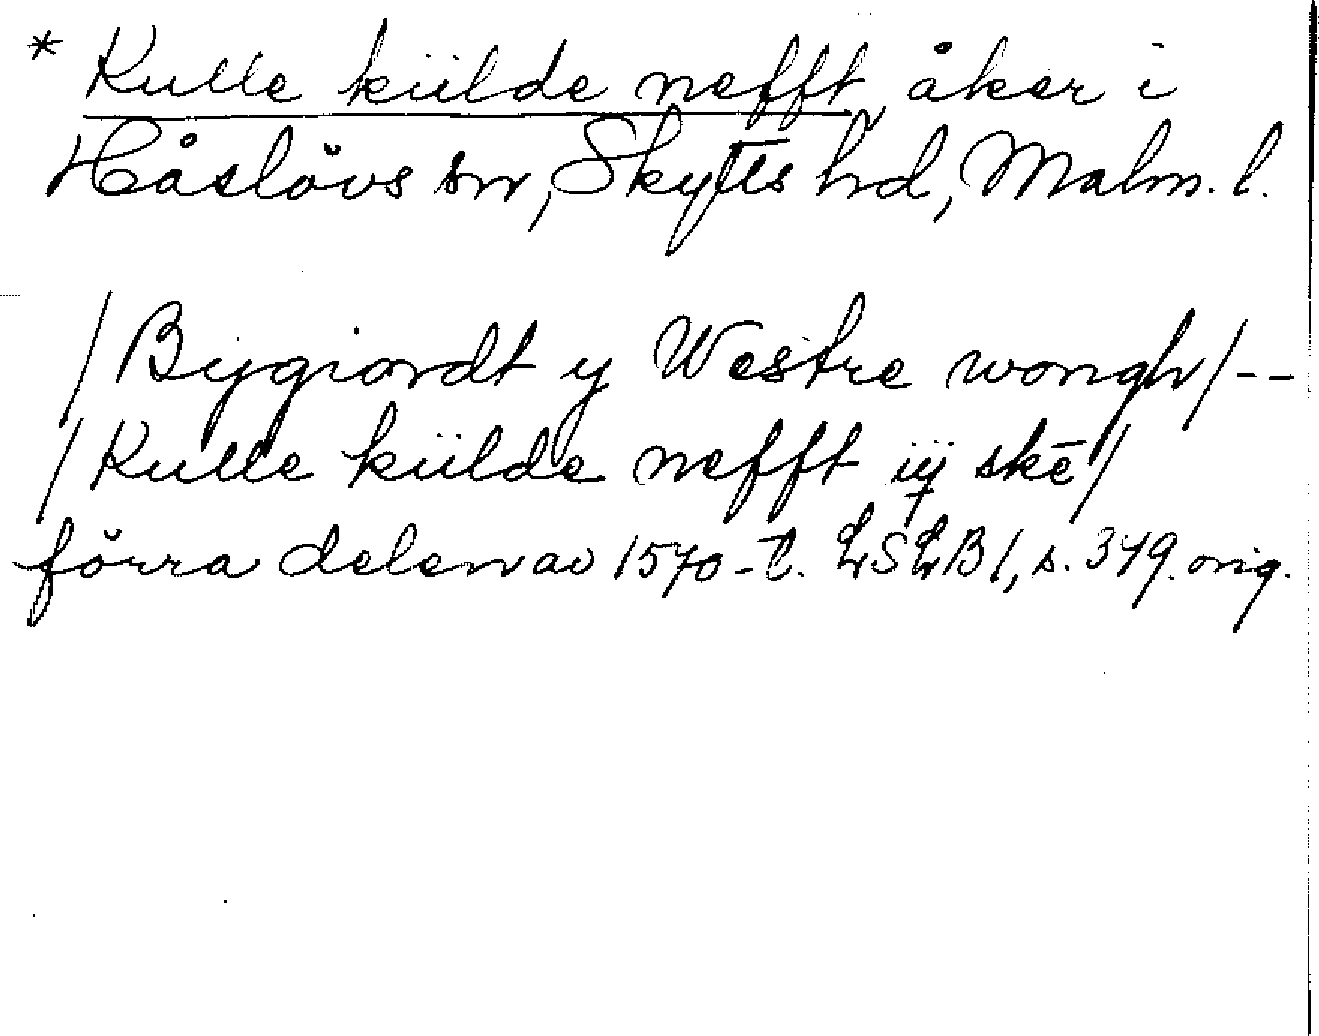 * Kulle külde nefft, åker i
Håslövs sn, Skytts hd, Malm. l.
/Bygiordt y Westre wongh/--
/Kulle külde nefft iij skē/
förra delen av 1570-t. LSLB 1, s. 379. orig.